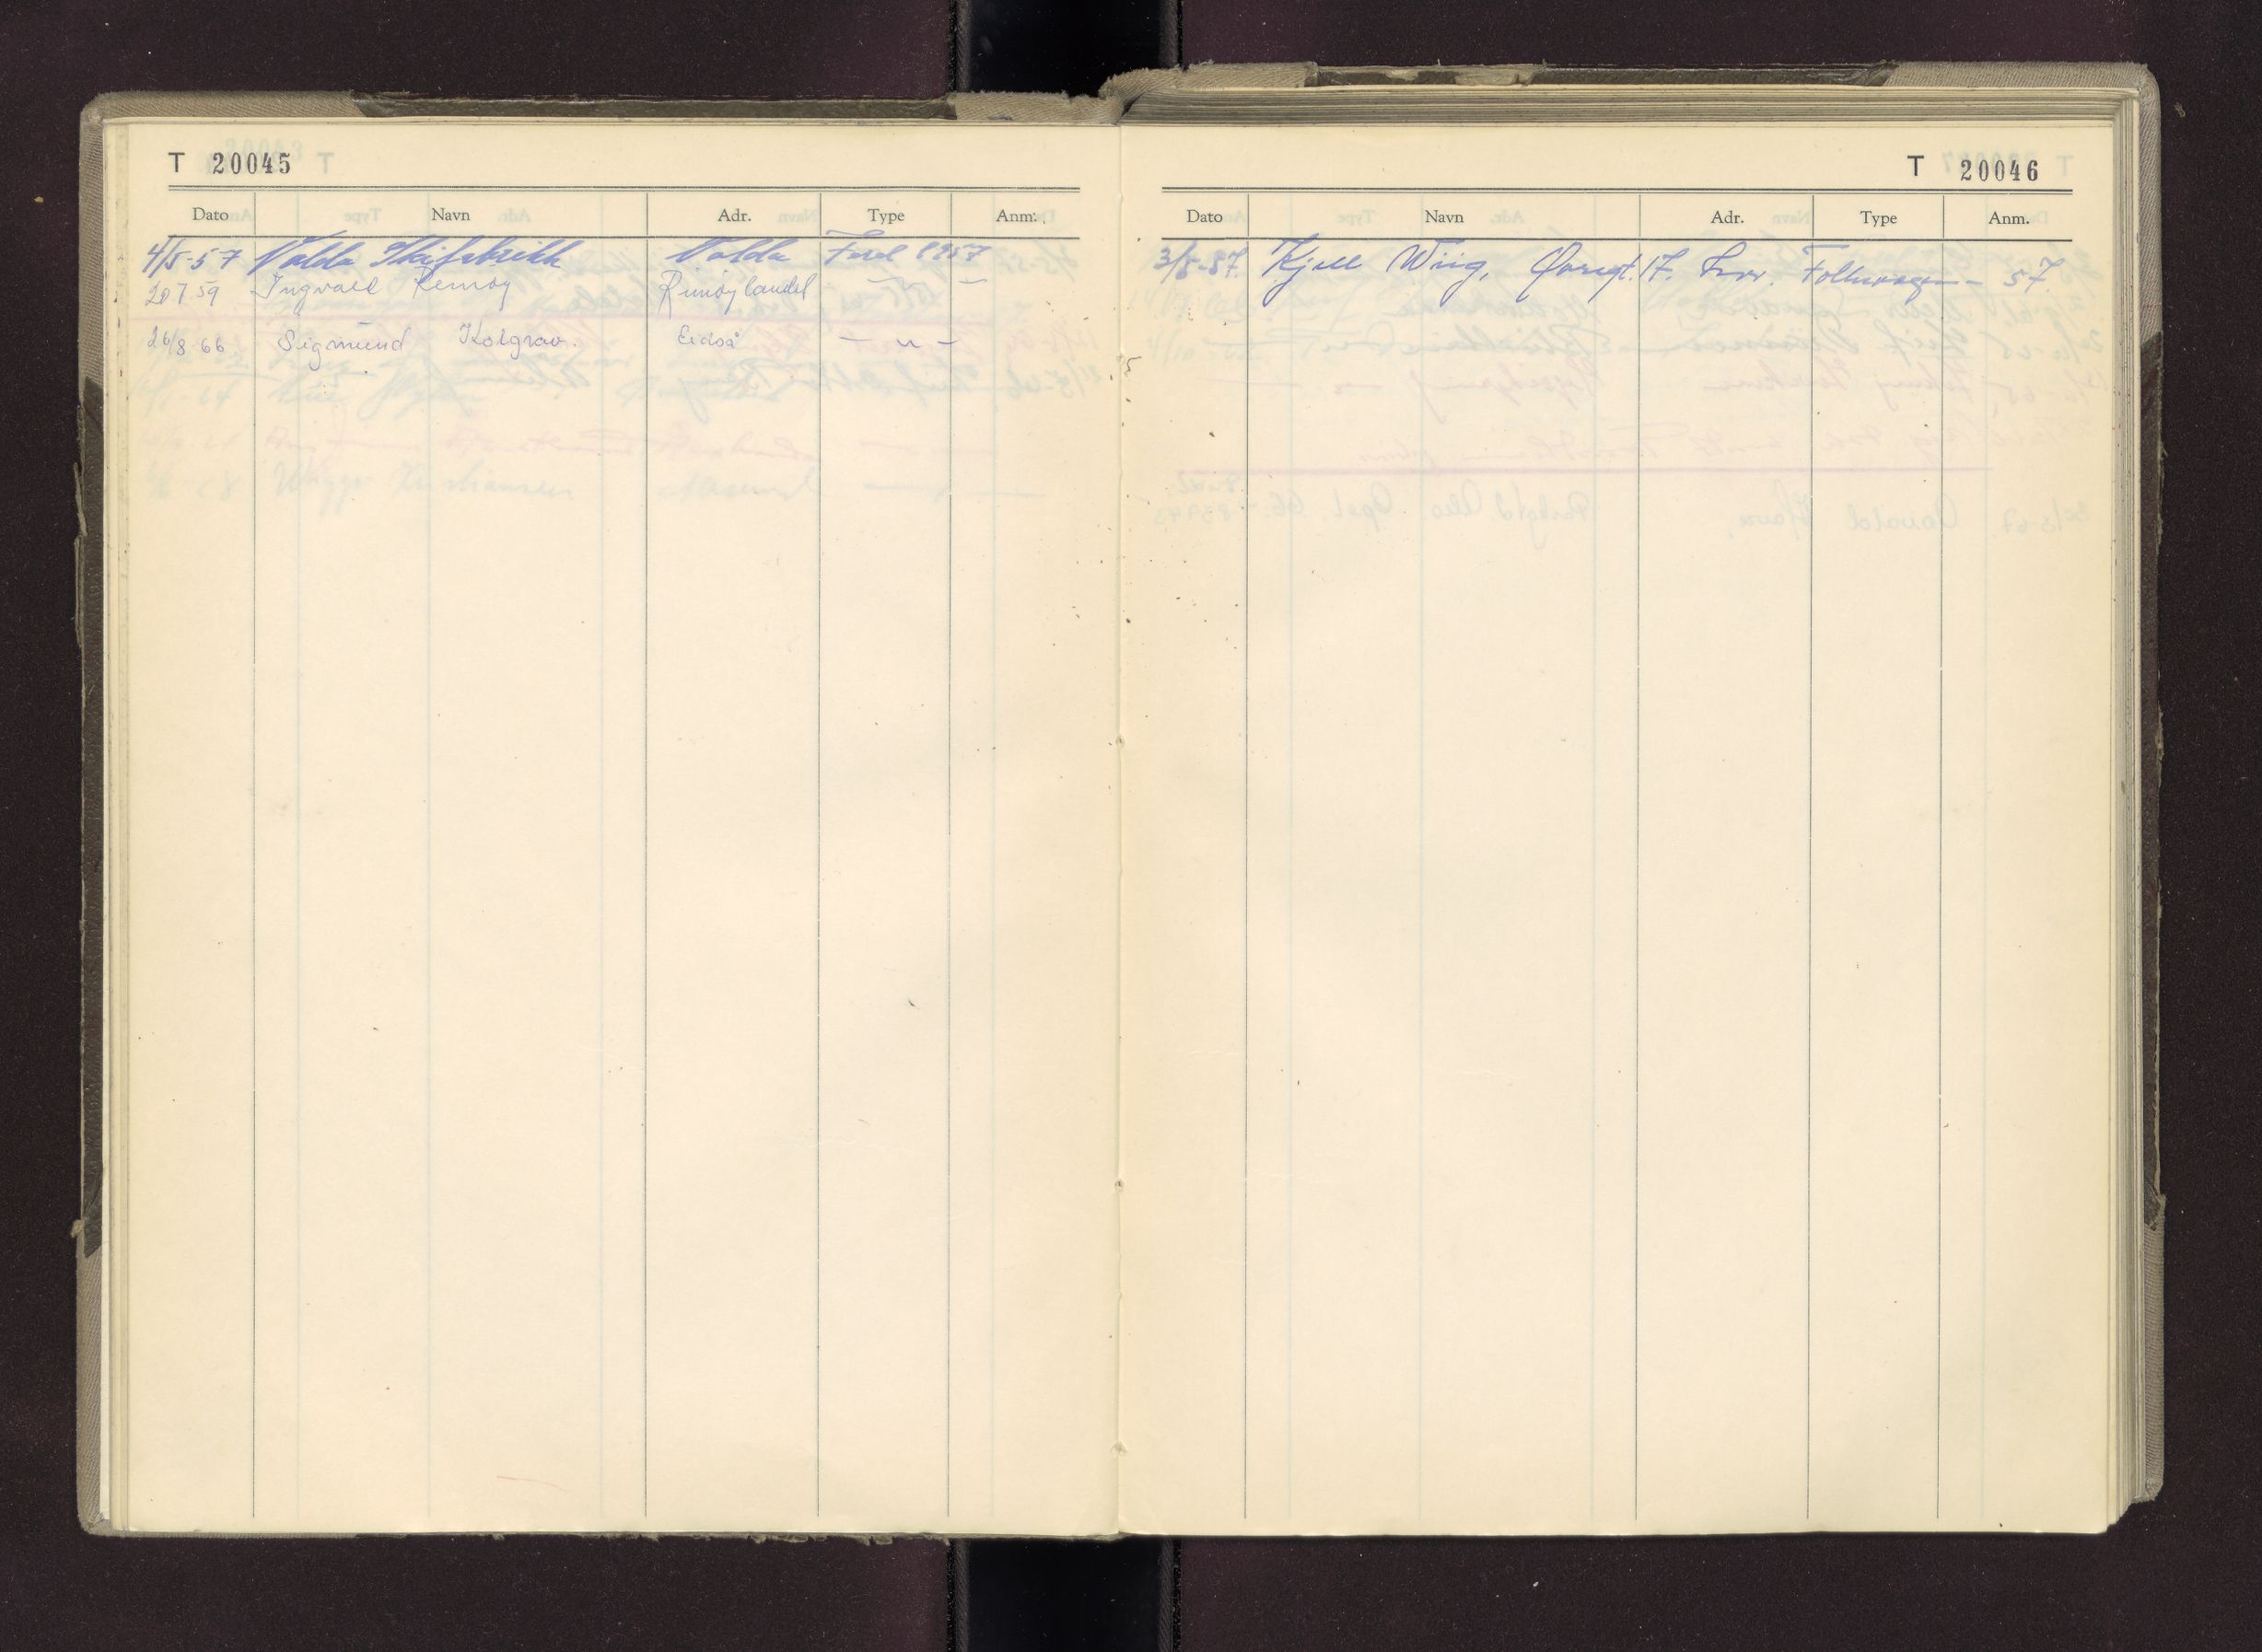 T 20045
Dato Navn Adr. Type Anm.
4/5-57 Volda Skifabrikk Volda Ford 1957
20 7 59 Ingvald Remøy Rimøylandet — " —
26/8-66 Sigmund Kolgrav. Eidså — " —
T 20046
Dato Navn Adr. Type Anm.
3/5-57 Kjell Wiig, 17. Folkevogn - 57.